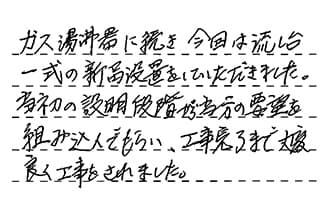 ガス湯沸器に続き 今回は流し台
一式の新品設置をしていただきました。
当初の説明段階から当方の要望を
組み込んでもらい、工事完了まで大変
良く工事をされました。